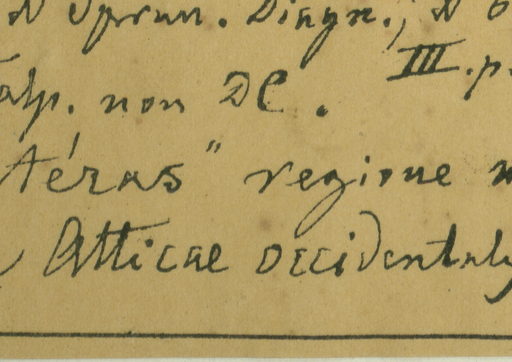 et Sprun. Diagn.; et
III. p.
alp. non DC.
Atéras" regione
Atticae occidental